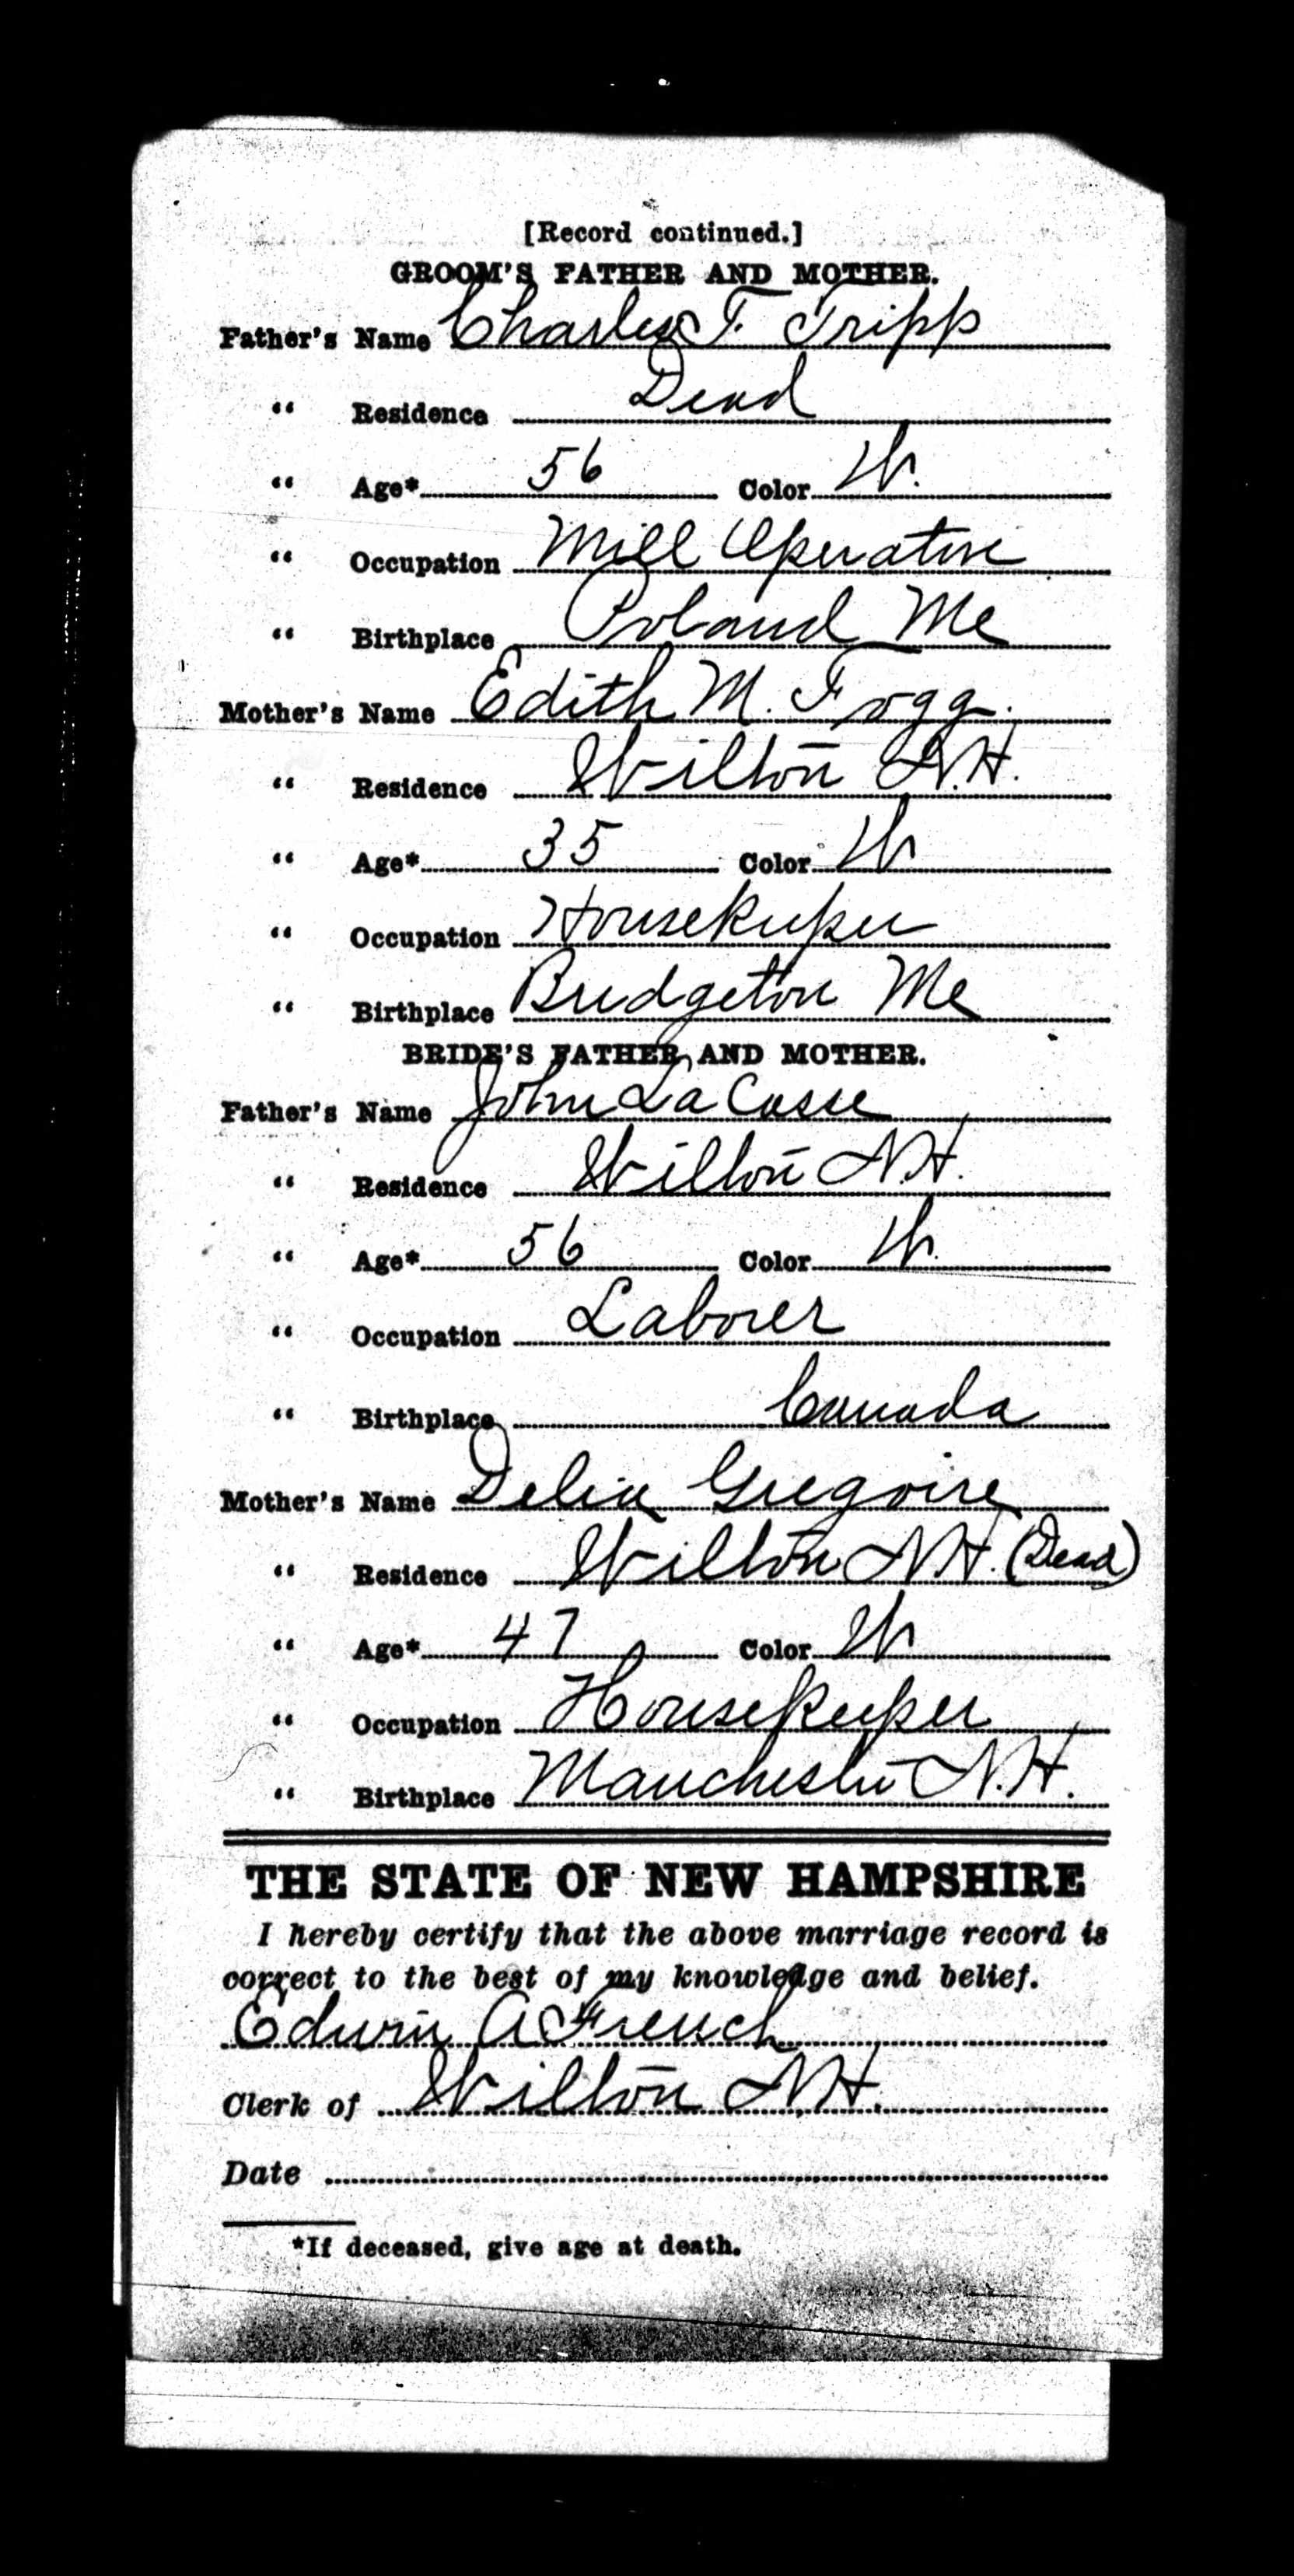 [Record continued.]
GROOM'S FATHER AND MOTHER.
Father's Name Charles T. Tripp
" Residence Dead
" Age* 56 Color W.
" Occupation Mill Operative
" Birthplace Poland Me
Mother's Name Edith M. Fogg.
" Residence Wilton N.H.
" Age* 35 Color W
" Occupation Housekeeper
" Birthplace Bridgeton Me
BRIDE'S FATHER AND MOTHER.
Father's Name John La Casse
" Residence Wilton N.H.
" Age* 56 Color W.
" Occupation Laborer
" Birthplace Canada
Mother's Name Delia Gregoire
" Residence Wilton N.H. (Dead)
" Age* 47 Color W
" Occupation Housekeeper
" Birthplace Manchester N.H.
THE STATE OF NEW HAMPSHIRE
I hereby certify that the above marriage record is
correct to the best of my knowledge and belief.
Edwin A French
Clerk of Wilton N.H.
Date
*If deceased, give age at death.